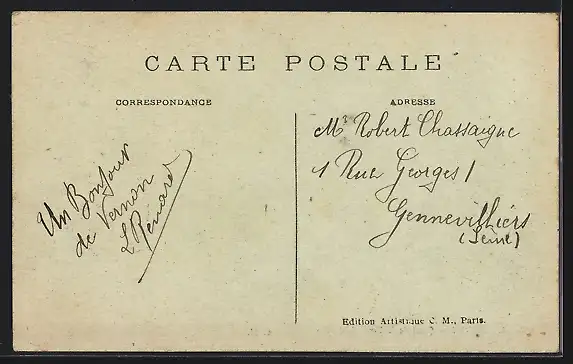 CARTE POSTALE
CORRESPONDANCE
Un Bonjour
de Vernon
L Renard
ADRESSE
Mr Robert Chassaigne
1 Rue Georges 1
Gennevilliers
(Seine)
Edition Artistique C. M., Paris.